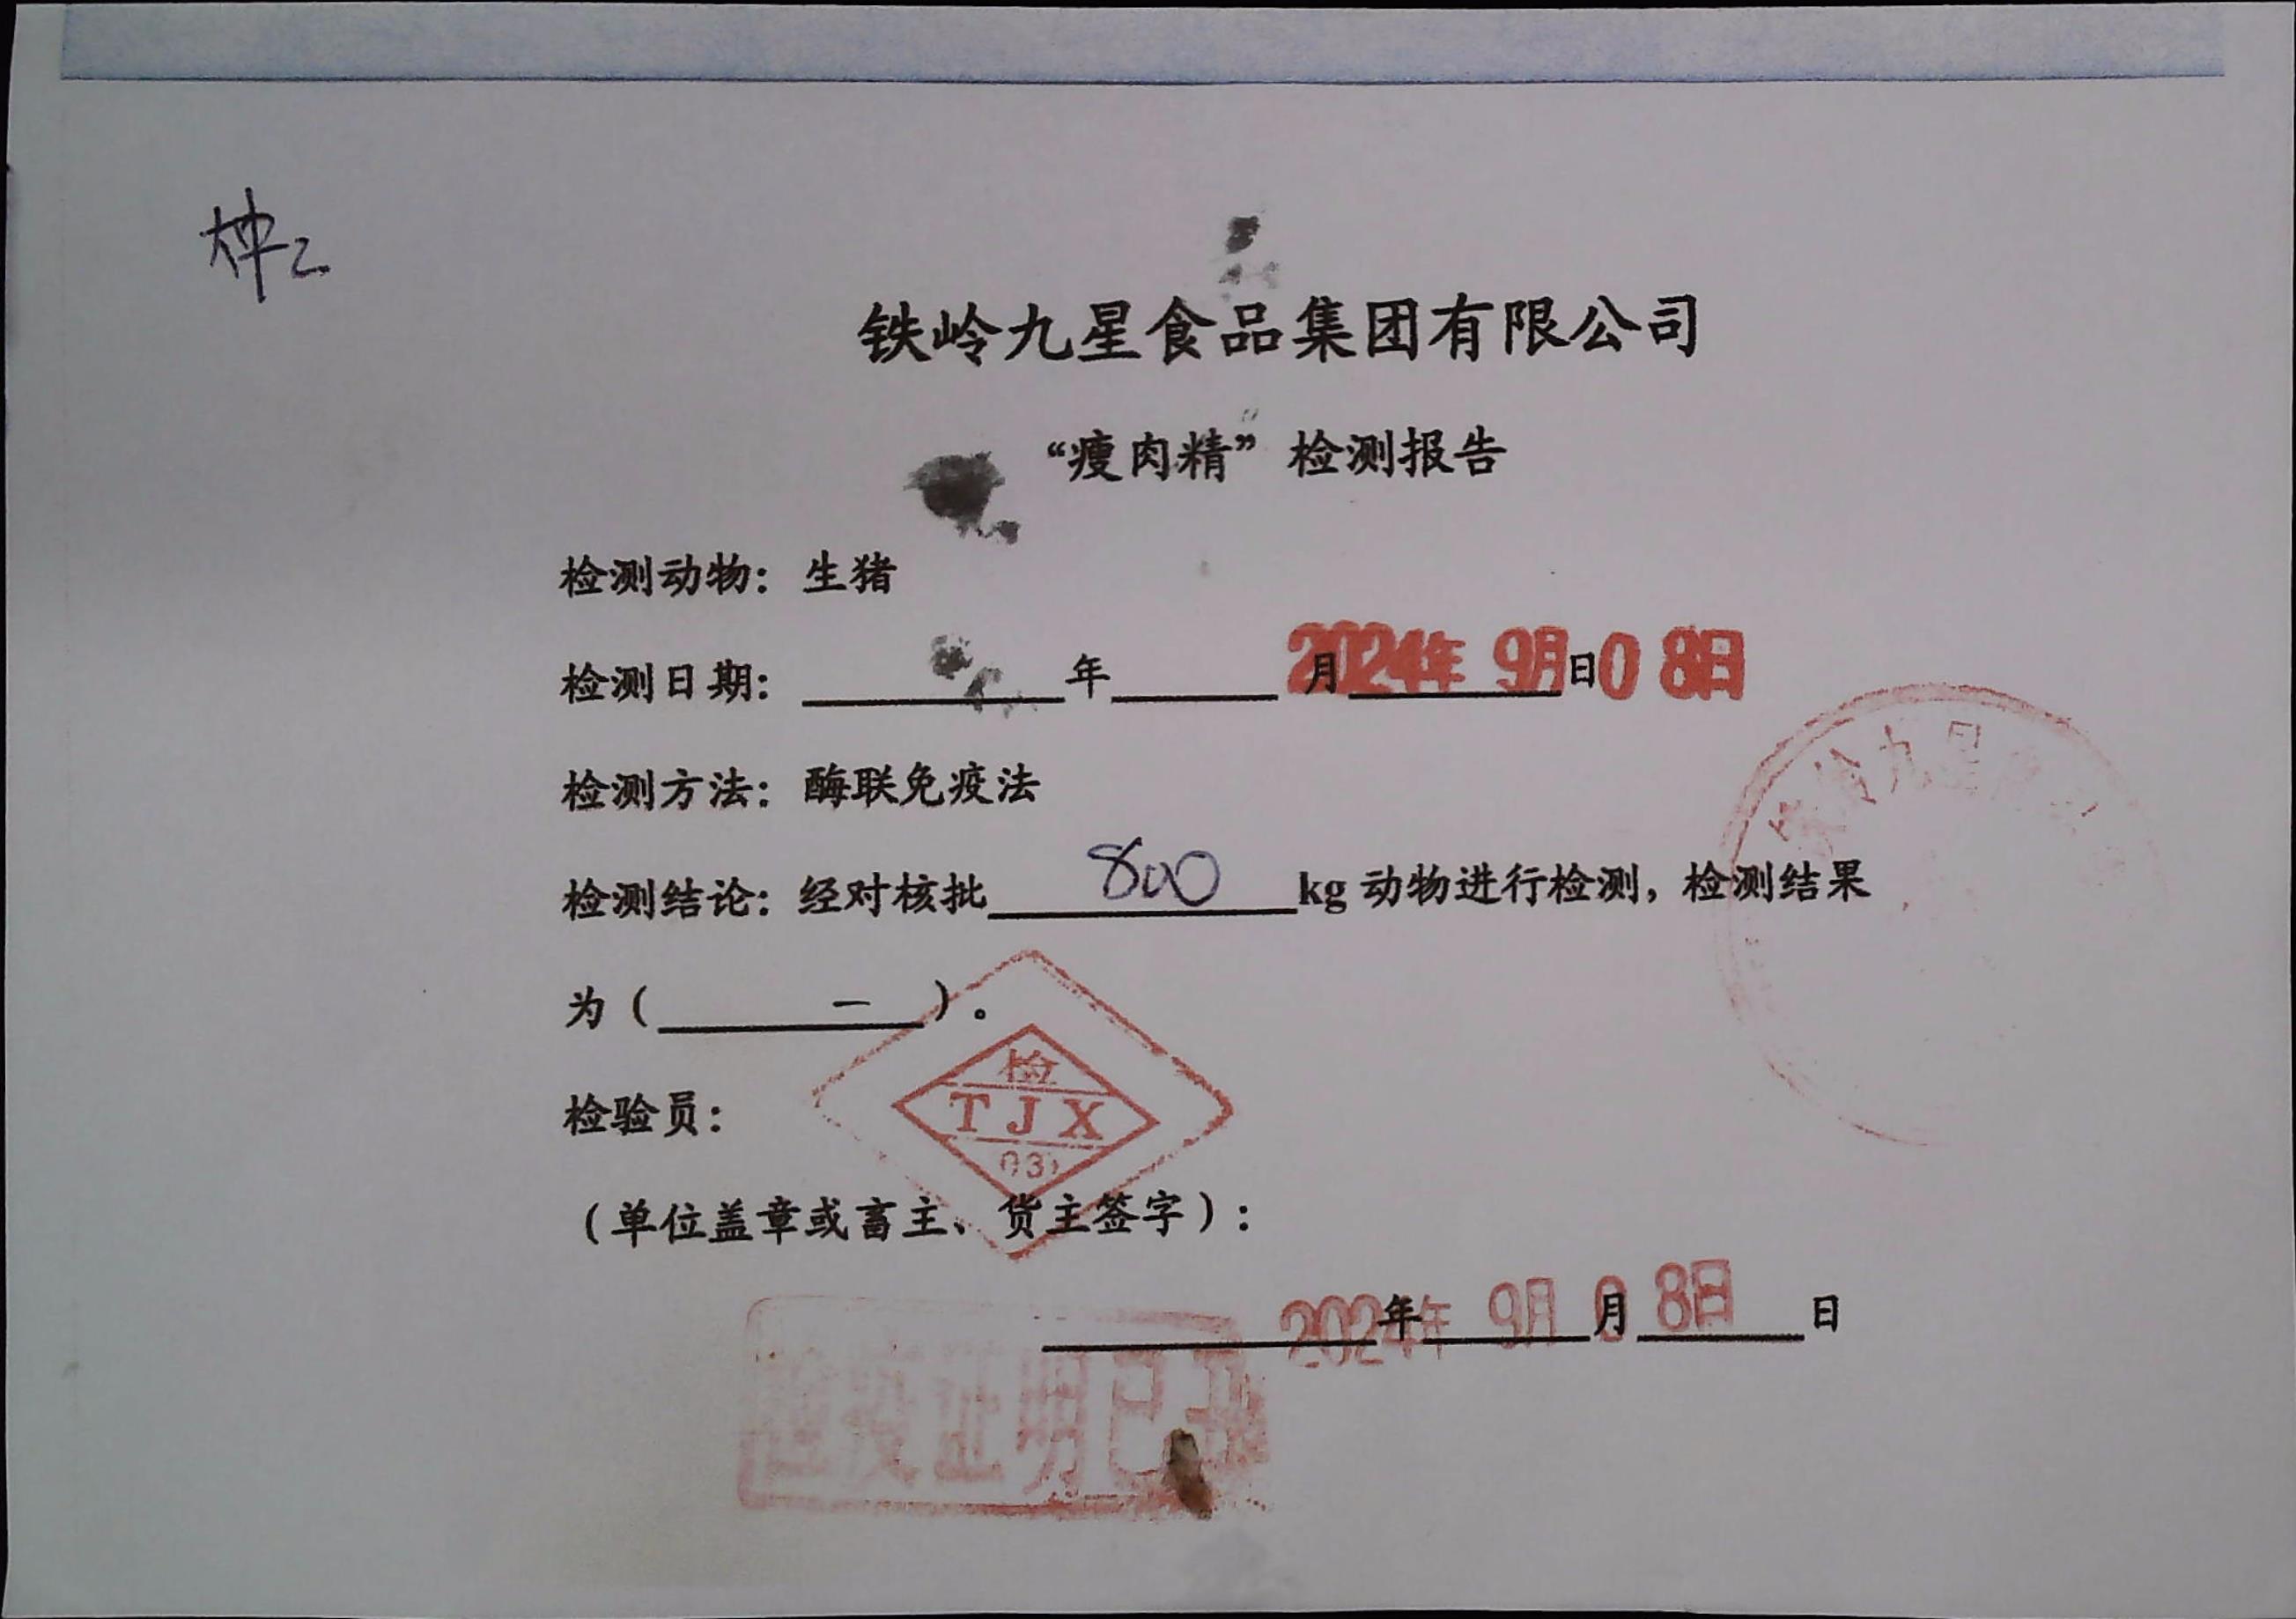 铁岭九星食品集团有限公司
“瘦肉精”检测报告
检测动物：生猪
检测日期：年月日
2024年9月08日
检测方法：酶联免疫法
检测结论：经对核批800kg动物进行检测，检测结果
为（一）。
检验员：
检
TJX
（单位盖章或畜主、货主签字）：
年月日
2024年9月08日
检疫证明已开
岭九星